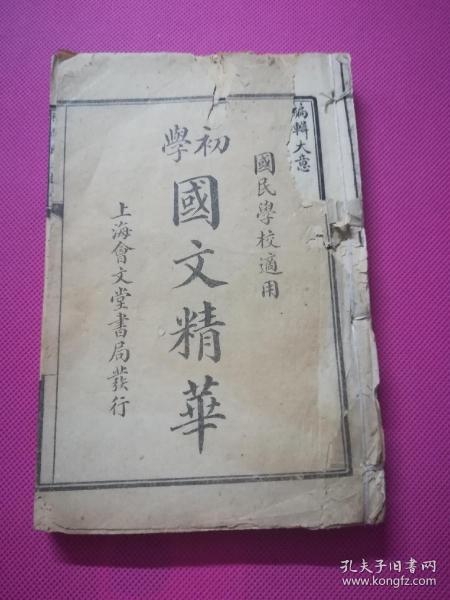 編輯大意
國民學校適用
初學
國文精華
上海會文堂書局發行
孔夫子旧书网
www.kongfz.com